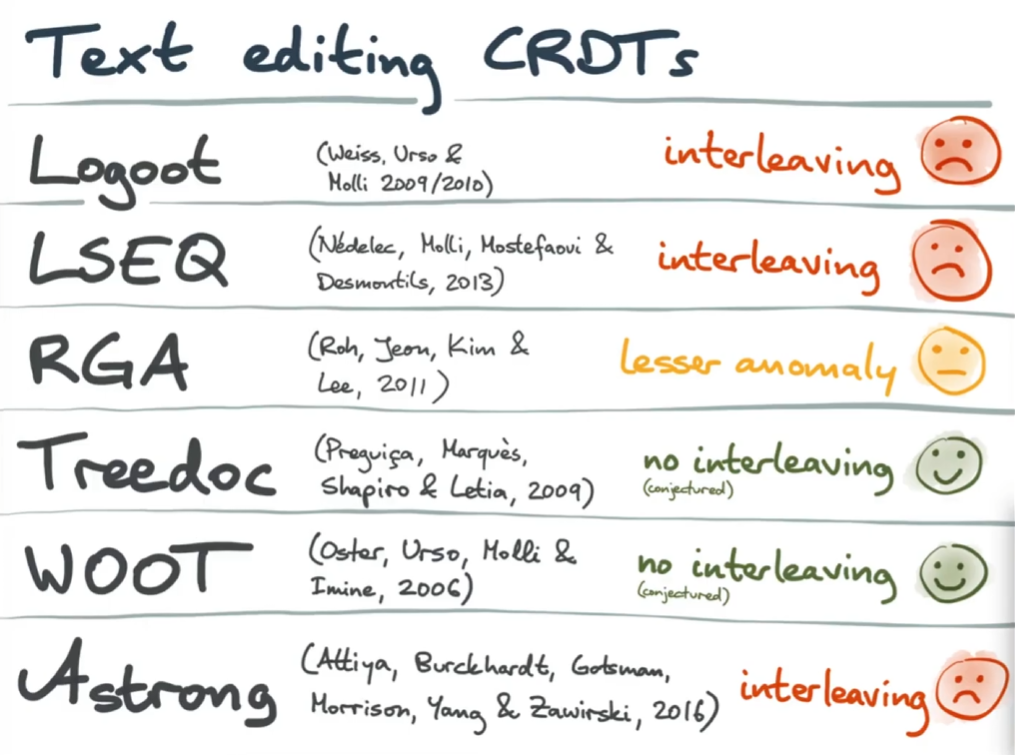 Text editing CRDTs
Logoot (Weiss, Urso & Molli 2009/2010) interleaving
LSEQ (Nédelec, Molli, Mostefaoui & Desmontils, 2013) interleaving
RGA (Roh, Jeon, Kim & Lee, 2011) lesser anomaly
Treedoc (Preguiça, Marquès, Shapiro & Letia, 2009) no interleaving (conjectured)
WOOT (Oster, Urso, Molli & Imine, 2006) no interleaving (conjectured)
Astrong (Attiya, Burckhardt, Gotsman, Morrison, Yang & Zawirski, 2016) interleaving